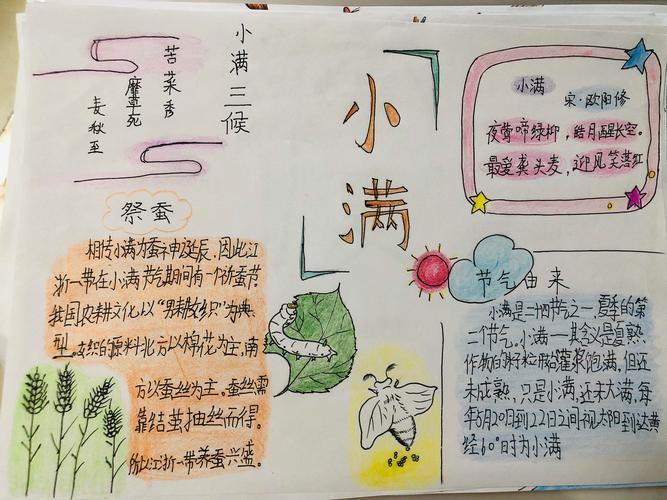 小满三候
苦菜秀
靡草死
麦秋至
小满
小满
宋·欧阳修
夜莺啼绿柳,皓月醒长空。
最爱垄头麦,迎风笑落红
祭蚕
相传小满为蚕神诞辰,因此江
浙一带在小满节气期间有一个祈蚕节
我国农耕文化以“男耕女织”为典
型。女织的原料北方以棉花为主,南
方以蚕丝为主。蚕丝需
靠结茧抽丝而得。
所以江浙一带养蚕兴盛。
节气由来
小满是二十四节气之一,夏季的第
二个节气。小满—其含义是夏熟
作物的籽粒开始灌浆饱满,但还
未成熟,只是小满,还未大满,每
年5月20日到22日之间视太阳到达黄
经60°时为小满